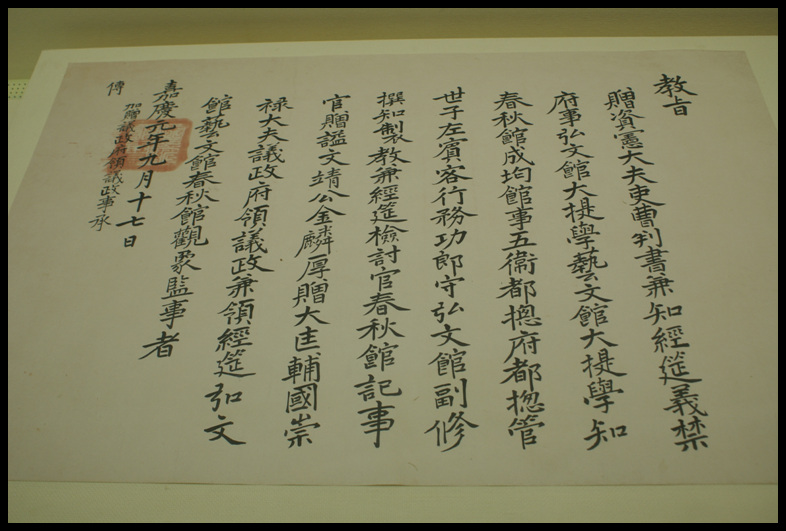 教旨
贈資憲大夫吏曹判書兼知經筵義禁
府事弘文館大提學藝文館大提學知
春秋館成均館事五衛都摠府都摠管
世子左賓客行務功郎守弘文館副修
撰知製教兼經筵檢討官春秋館記事
官贈謚文靖公金麟厚贈大匡輔國崇
祿大夫議政府領議政兼領經筵弘文
館藝文館春秋館觀象監事者
嘉慶元年九月十七日
加贈議政府領議政事承
傳